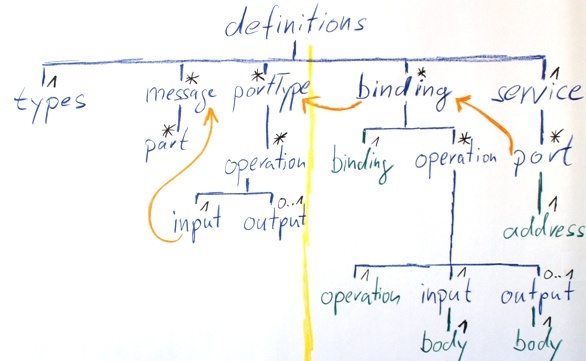 definitions
types 1 message * portType * binding * service 1
part * operation * binding 1 operation * port *
input 1 output 0..1 address 1
operation 1 input 1 output 0..1
body 1 body 1